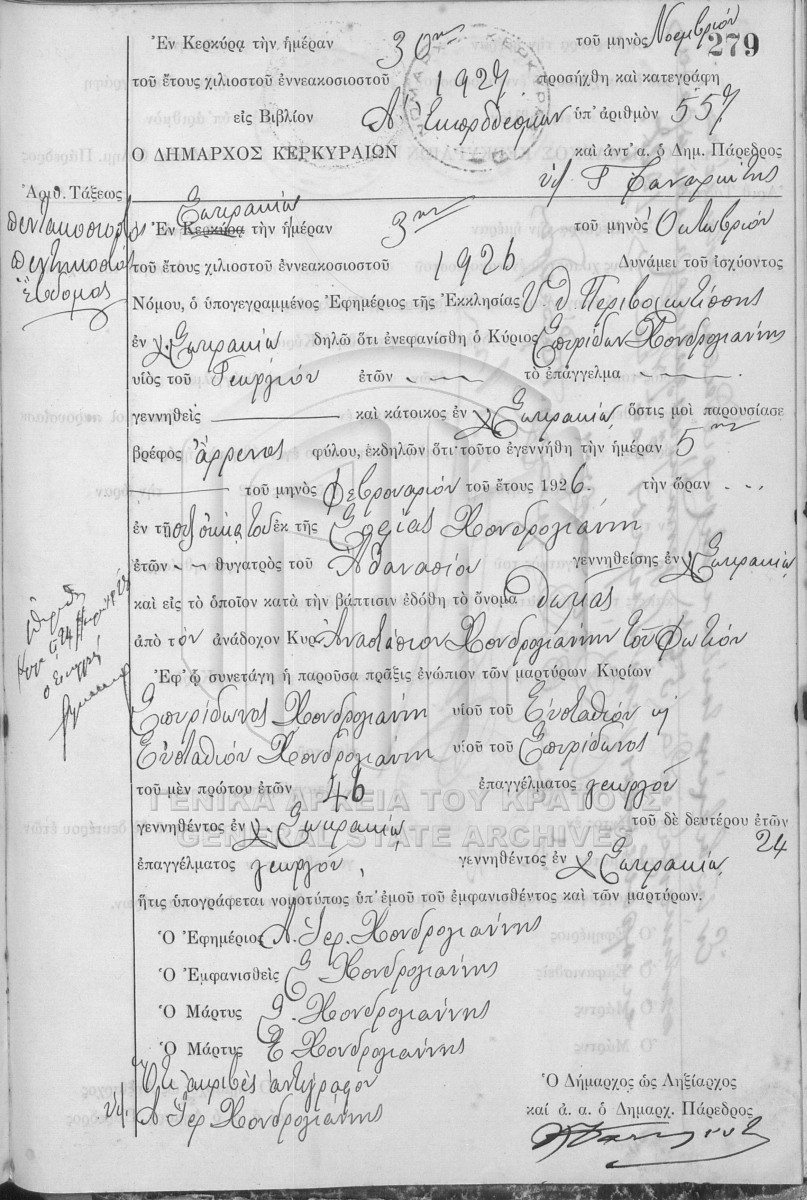 279
Ἐν Κερκύρᾳ τὴν ἡμέραν 30ην τοῦ μηνὸς Νοεμβρίου
τοῦ ἔτους χιλιοστοῦ ἐννεακοσιοστοῦ 1927 προσήχθη καὶ κατεγράφη
εἰς Βιβλίον Α΄ ὑπ᾽ ἀριθμὸν 557
Ο ΔΗΜΑΡΧΟΣ ΚΕΡΚΥΡΑΙΩΝ καὶ ἀντ᾽ α. ὁ Δημ. Πάρεδρος
Ἀριθ. Τάξεως
πεντακοσιοστὸς
πεντηκοστὸς
ἕβδομος
Σωκρακίῳ
Ἐν Κερκύρᾳ τὴν ἡμέραν 3ην τοῦ μηνὸς Ὀκτωβρίου
τοῦ ἔτους χιλιοστοῦ ἐννεακοσιοστοῦ 1926 Δυνάμει τοῦ ἰσχύοντος
Νόμου, ὁ ὑπογεγραμμένος Ἐφημέριος τῆς Ἐκκλησίας Υ. Θ. Περιβολιωτίσσης
ἐν χ. Σωκρακίῳ δηλῶ ὅτι ἐνεφανίσθη ὁ Κύριος Σπυρίδων Χονδρογιάννης
υἱὸς τοῦ Γεωργίου ἐτῶν τὸ ἐπάγγελμα
γεννηθεὶς καὶ κάτοικος ἐν χ. Σωκρακίῳ ὅστις μοὶ παρουσίασε
βρέφος ἄρρενος φύλου, ἐκδηλῶν ὅτι τοῦτο ἐγεννήθη τὴν ἡμέραν 5ην
τοῦ μηνὸς Φεβρουαρίου τοῦ ἔτους 1926. τὴν ὥραν
ἐν τῇ οἰκίᾳ του ἐκ τῆς Χονδρογιάννη
ἐτῶν θυγατρὸς τοῦ Ἀθανασίου γεννηθείσης ἐν χ. Σωκρακίῳ
καὶ εἰς τὸ ὁποῖον κατὰ τὴν βάπτισιν ἐδόθη τὸ ὄνομα Θωμᾶς
ἀπὸ τὸν ἀνάδοχον Κυρ. Ἀναστάσιον Χονδρογιάννην τοῦ Φωτίου
Ἐφ᾽ ᾧ συνετάγη ἡ παροῦσα πρᾶξις ἐνώπιον τῶν μαρτύρων Κυρίων
Σπυρίδωνος Χονδρογιάννη υἱοῦ τοῦ Εὐσταθίου ϗ
Εὐσταθίου Χονδρογιάννη υἱοῦ τοῦ Σπυρίδωνος
τοῦ μὲν πρώτου ἐτῶν 46 ἐπαγγέλματος γεωργοῦ
γεννηθέντος ἐν χ. Σωκρακίῳ τοῦ δὲ δευτέρου ἐτῶν 24
ἐπαγγέλματος γεωργοῦ, γεννηθέντος ἐν χ. Σωκρακίῳ
ἥτις ὑπογράφεται νομοτύπως ὑπ᾽ ἐμοῦ τοῦ ἐμφανισθέντος καὶ τῶν μαρτύρων.
Ὁ Ἐφημέριος Α. Ἱερ. Χονδρογιάννης
Ὁ Ἐμφανισθεὶς Σ Χονδρογιάννης
Ὁ Μάρτυς Σ. Χονδρογιάννης
Ὁ Μάρτυς Ε Χονδρογιάννης
Ὅτι ἀκριβὲς ἀντίγραφον
Α Ἱερ Χονδρογιάννης
Ὁ Δήμαρχος ὡς Ληξίαρχος
καὶ ἀ. α. ὁ Δημαρχ. Πάρεδρος
ΓΕΝΙΚΑ ΑΡΧΕΙΑ ΤΟΥ ΚΡΑΤΟΥΣ
GENERAL STATE ARCHIVES